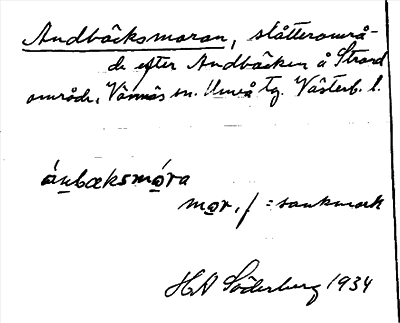 Andbäcksmoran, slåtterområ-
de efter Andbäcken å Strand
område, Vännäs sn. Umeå tg. Västerb. l.
ánbæksmóra
mor, f = sankmark
H A Söderberg 1934